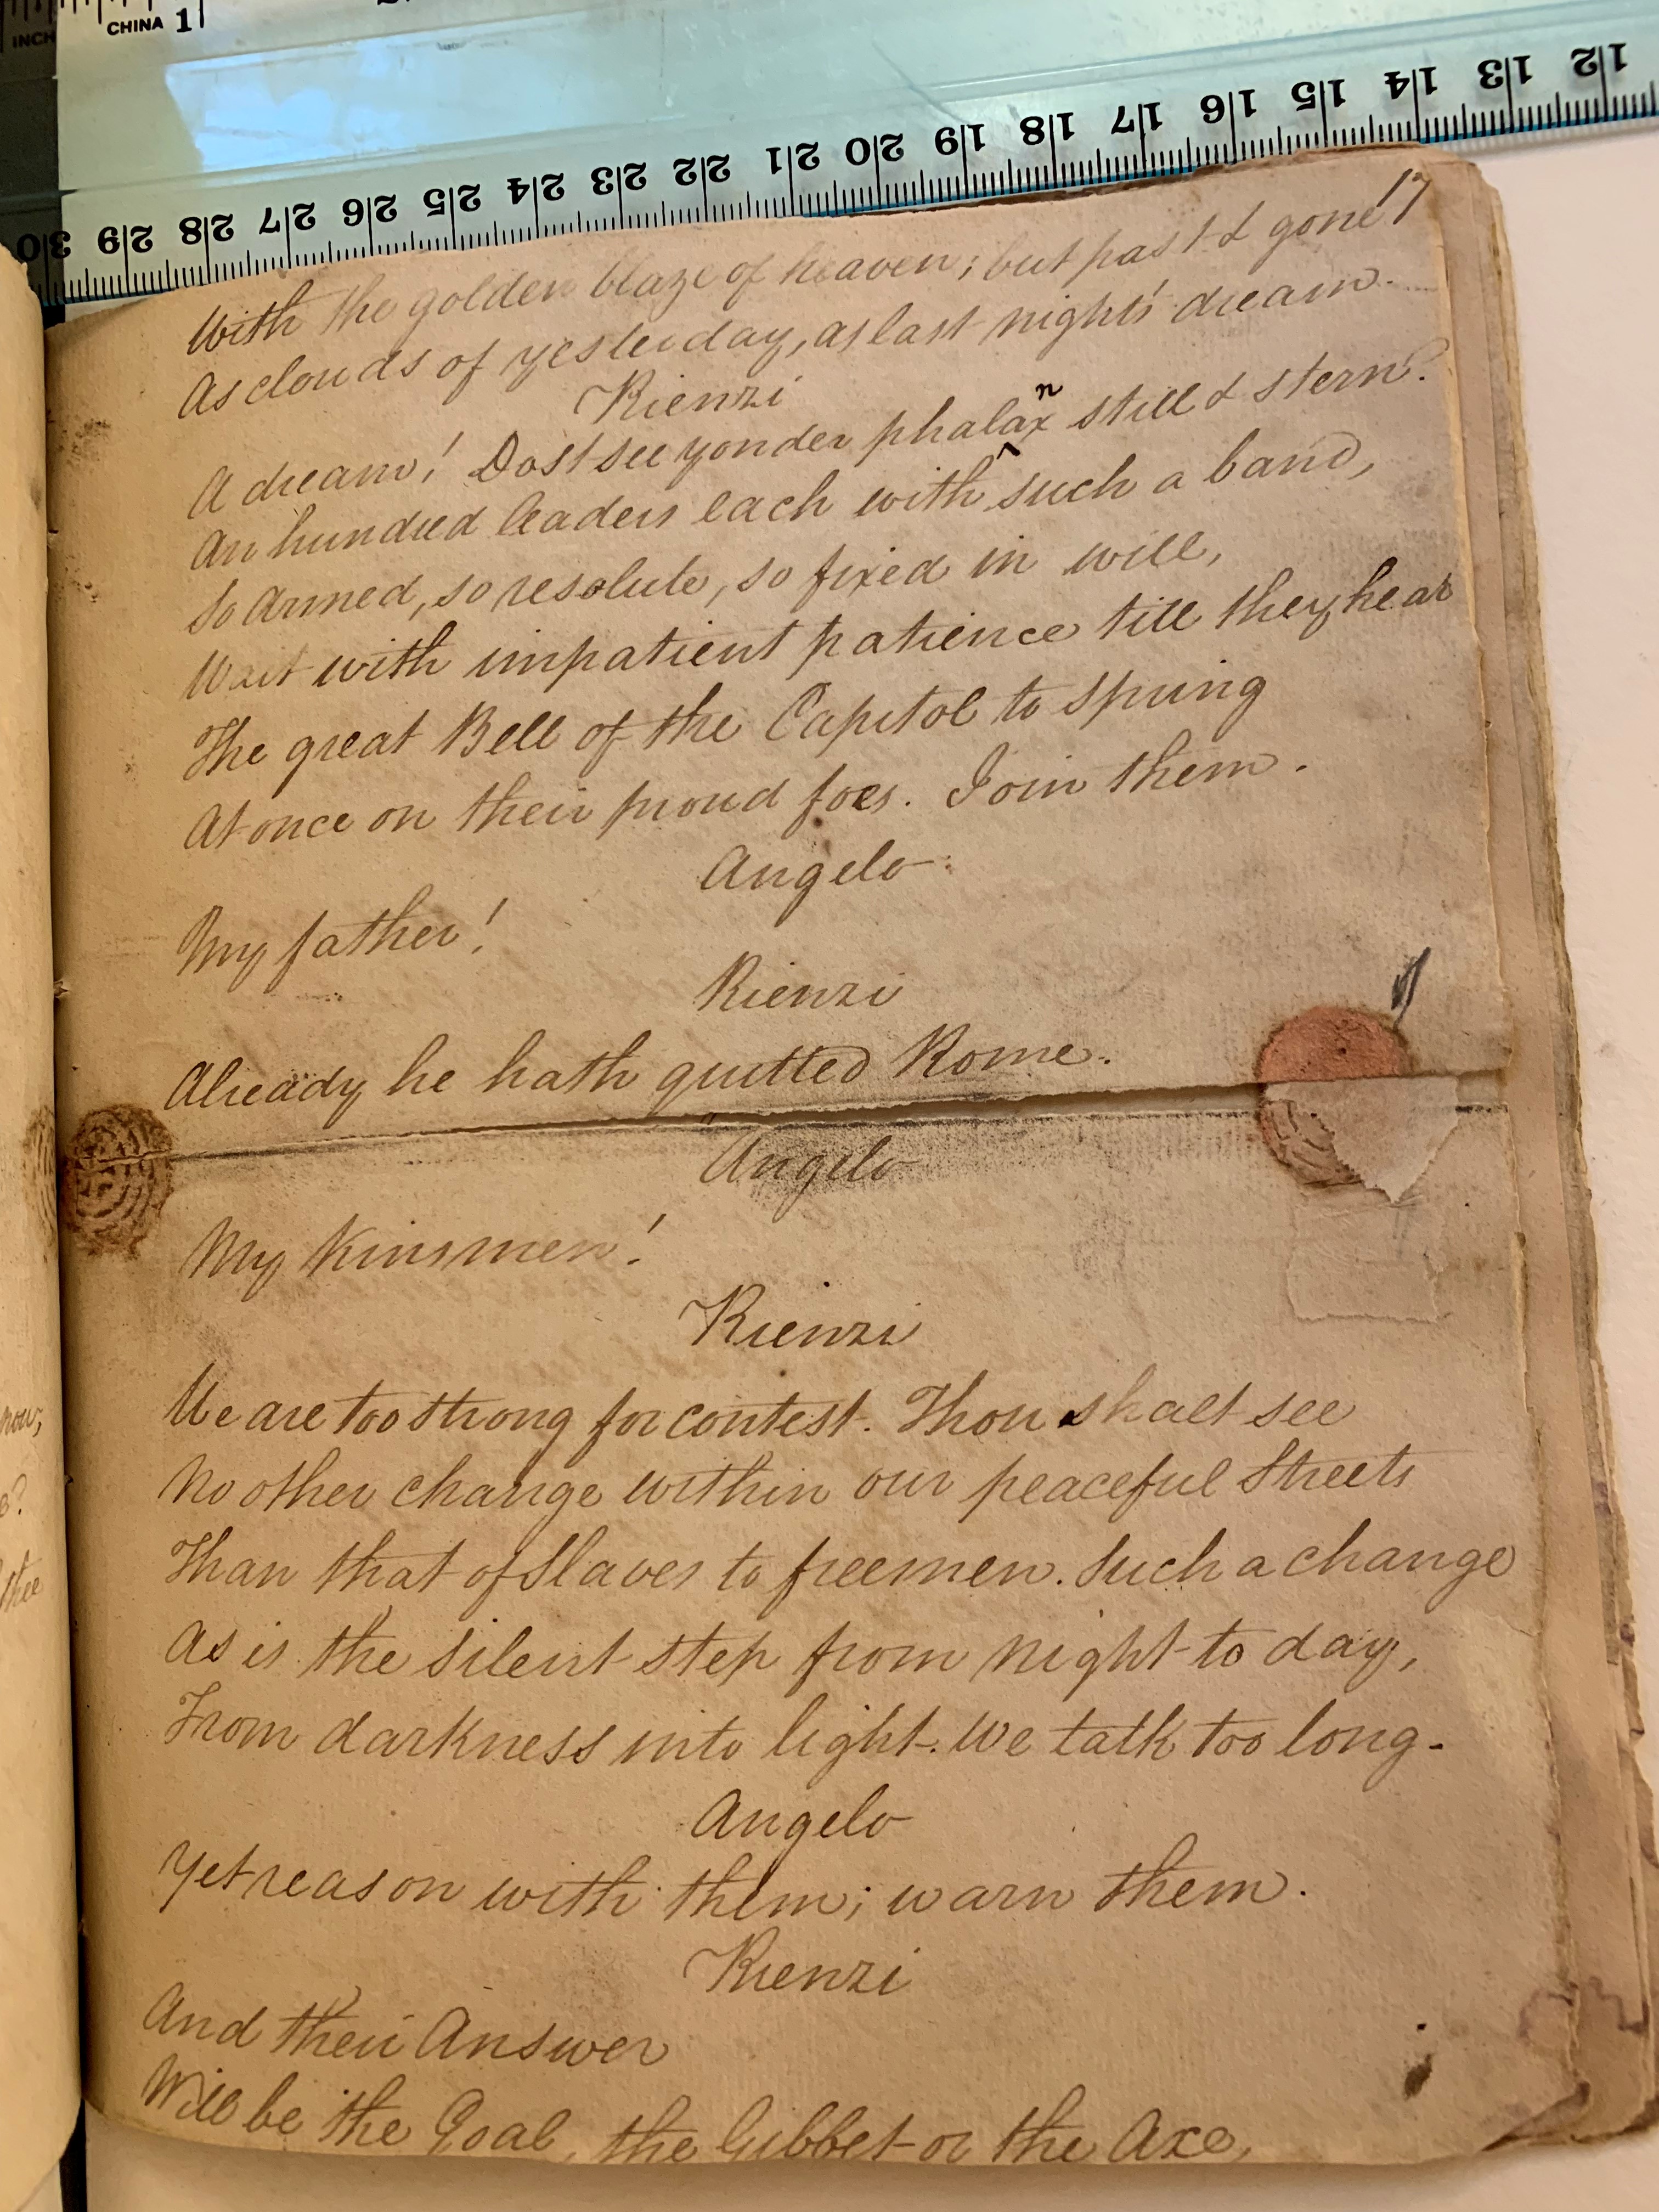 INCH
CHINA 1
30 29 28 27 26 25 24 23 22 21 20 19 18 17 16 15 14 13 12
17
With the golden blaze of heaven; but past & gone
As clouds of yesterday, as last night's dream.
Rienzi
n
A dream! Dost see yonder phalax still & stern?
An hundred leaders each with such a band,
So Armed, so resolute, so fixed in will,
Wait with impatient patience till they hear
The great Bell of the Capitol to spring
At once on their proud foes. Join them.
Angelo
My father!
Rienzi
Already he hath quitted Rome.
Angelo
My Kinsmen!
Rienzi
We are too strong for contest. Thou shalt see
No other change within our peaceful Streets
Than that of Slaves to freemen. Such a change
As is the silent step from night to day,
From darkness into light. We talk too long.
Angelo
Yet reason with them; warn them.
Rienzi
And their Answer
Will be the Goal, the Gibbet or the Axe,
now,
e?
thee